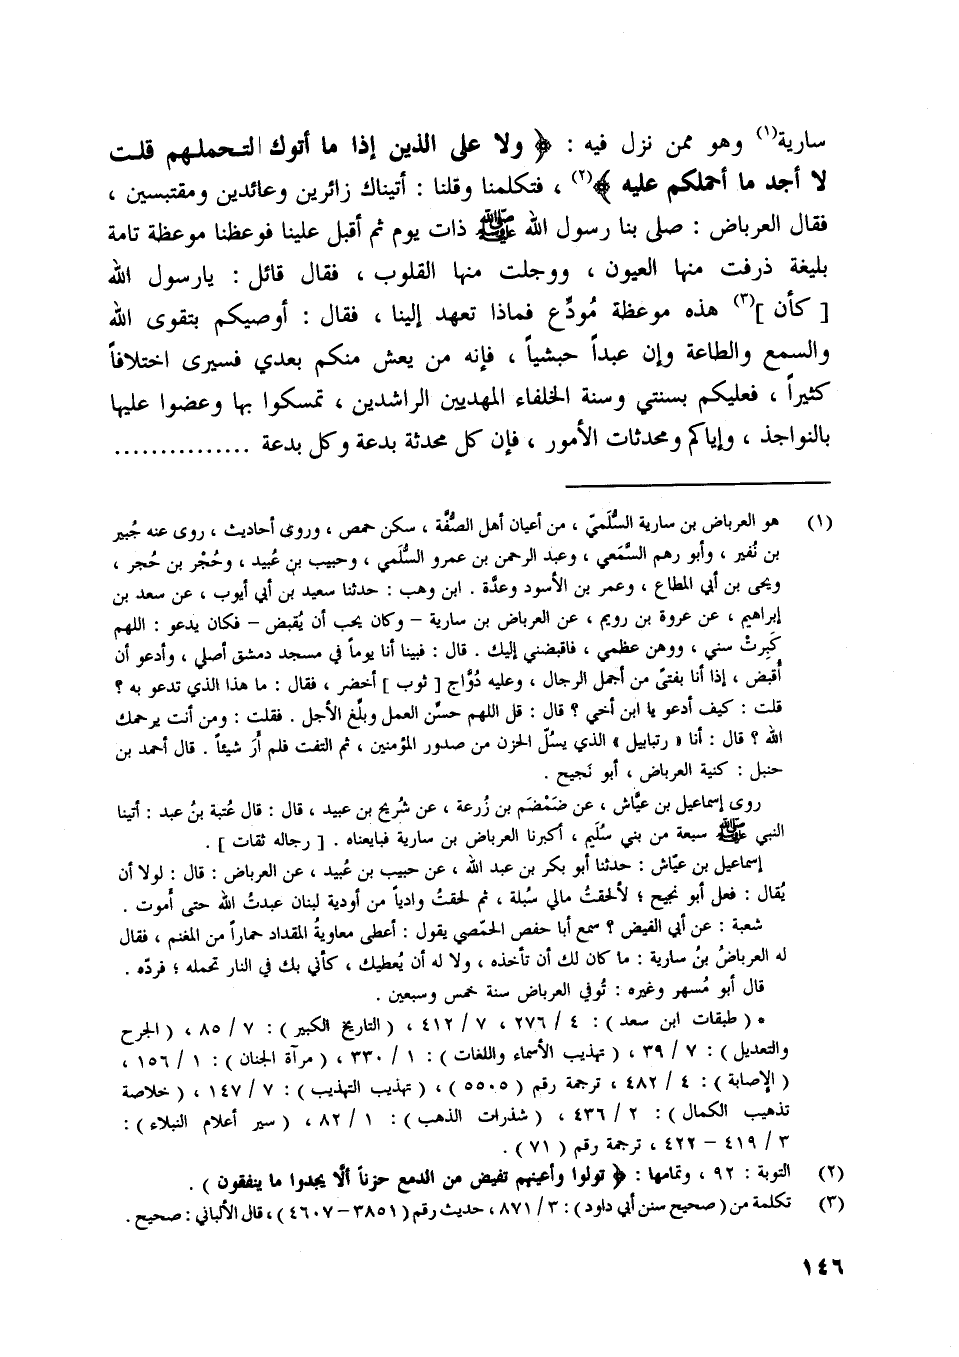 سارية(١) وهو ممن نزل فيه : ﴿ ولا على الذين إذا ما أتوك التحملهم قلت
لا أجد ما أحملكم عليه ﴾(٢) ، فتكلمنا وقلنا : أتيناك زائرين وعائدين ومقتبسين ،
فقال العرباض : صلى بنا رسول الله ﷺ ذات يوم ثم أقبل علينا فوعظنا موعظة تامة
بليغة ذرفت منها العيون ، ووجلت منها القلوب ، فقال قائل : يارسول الله
[ كأن ](٣) هذه موعظة مُودِّع فماذا تعهد إلينا ، فقال : أوصيكم بتقوى الله
والسمع والطاعة وإن عبداً حبشياً ، فإنه من يعش منكم بعدي فسيرى اختلافاً
كثيراً ، فعليكم بسنتي وسنة الخلفاء المهديين الراشدين ، تمسكوا بها وعضوا عليها
بالنواجذ ، وإياكم ومحدثات الأمور ، فإن كل محدثة بدعة وكل بدعة ...............
(١) هو العرباض بن سارية السُّلَميّ ، من أعيان أهل الصُّفَّة ، سكن حمص ، وروى أحاديث ، روى عنه جُبير
بن نُفير ، وأبو رهم السَّمَعي ، وعبد الرحمن بن عمرو السُّلَمي ، وحبيب بن عُبيد ، وحُجْر بن حُجر ،
ويحى بن أبي المطاع ، وعمر بن الأسود وعدَّة . ابن وهب : حدثنا سعيد بن أبي أيوب ، عن سعد بن
إبراهيم ، عن عروة بن رويم ، عن العرباض بن سارية – وكان يحب أن يُقبض – فكان يدعو : اللهم
كَبِرتْ سني ، ووهن عظمي ، فاقبضني إليك . قال : فبينا أنا يوماً في مسجد دمشق أصلي ، وأدعو أن
أُقبض ، إذا أنا بفتىً من أجمل الرجال ، وعليه دُوَّاج [ ثوب ] أخضر ، فقال : ما هذا الذي تدعو به ؟
قلت : كيف أدعو يا ابن أخي ؟ قال : قل اللهم حسِّن العمل وبلِّغ الأجل . فقلت : ومن أنت يرحمك
الله ؟ قال : أنا « رتبابيل » الذي يسُلّ الحزن من صدور المؤمنين ، ثم التفت فلم أَرَ شيئاً . قال أحمد بن
حنبل : كنية العرباض ، أبو نَجيح .
روى إسماعيل بن عيَّاش ، عن ضَمْضَم بن زُرعة ، عن شُريح بن عبيد ، قال : قال عُتبة بنُ عبد : أتينا
النبي ﷺ سبعة من بني سُلَيم ، أكبرنا العرباض بن سارية فبايعناه . [ رجاله ثقات ] .
إسماعيل بن عيّاش : حدثنا أبو بكر بن عبد الله ، عن حبيب بن عُبيد ، عن العرباض : قال : لولا أن
يُقال : فعل أبو نجيح ؛ لألحقتُ مالي سُبلة ، ثم لحقتُ وادياً من أودية لبنان عبدتُ الله حتى أموت .
شعبة : عن أبي الفيض ؟ سمع أبا حفص الحمْصي يقول : أعطى معاويةُ المقداد حماراً من المغنم ، فقال
له العرباضُ بنُ سارية : ما كان لك أن تأخذه ، ولا له أن يُعطيك ، كأني بك في النار تحمله ؛ فردّه .
قال أبو مُسهر وغيره : تُوفي العرباض سنة خمس وسبعين .
• ( طبقات ابن سعد ) : ٤ / ٢٧٦ ، ٧ / ٤١٢ ، ( التاريخ الكبير ) : ٧ / ٨٥ ، ( الجرح
والتعديل ) : ٧ / ٣٩ ، ( تهذيب الأسماء واللغات ) : ١ / ٣٣٠ ، ( مرآة الجنان ) : ١ / ١٥٦ ،
( الإصابة ) : ٤ / ٤٨٢ ، ترجمة رقم ( ٥٥٠٥ ) ، ( تهذيب التهذيب ) : ٧ / ١٤٧ ، ( خلاصة
تذهيب الكمال ) : ٢ / ٤٣٦ ، ( شذرات الذهب ) : ١ / ٨٢ ، ( سير أعلام النبلاء ) :
٣ / ٤١٩ – ٤٢٢ ، ترجمة رقم ( ٧١ ) .
(٢) التوبة : ٩٢ ، وتمامها : ﴿ تولوا وأعينهم تفيض من الدمع حزناً ألّا يجدوا ما ينفقون ) .
(٣) تكلمة من ( صحيح سنن أبي داود ) : ٣ / ٨٧١ ، حديث رقم ( ٣٨٥١ – ٤٦٠٧ ) ، قال الألباني : صحيح .
١٤٦